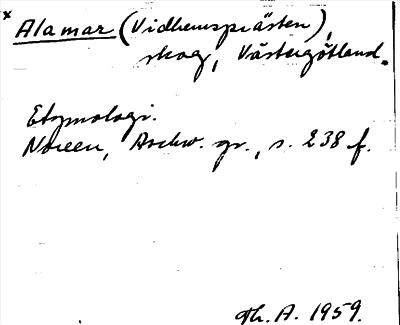 * Alamar (Vidhemsprästen),
skog, Västergötland.
Etymologi.
Noreen, Aschw. gr., s. 238 f.
Th. A. 1959.